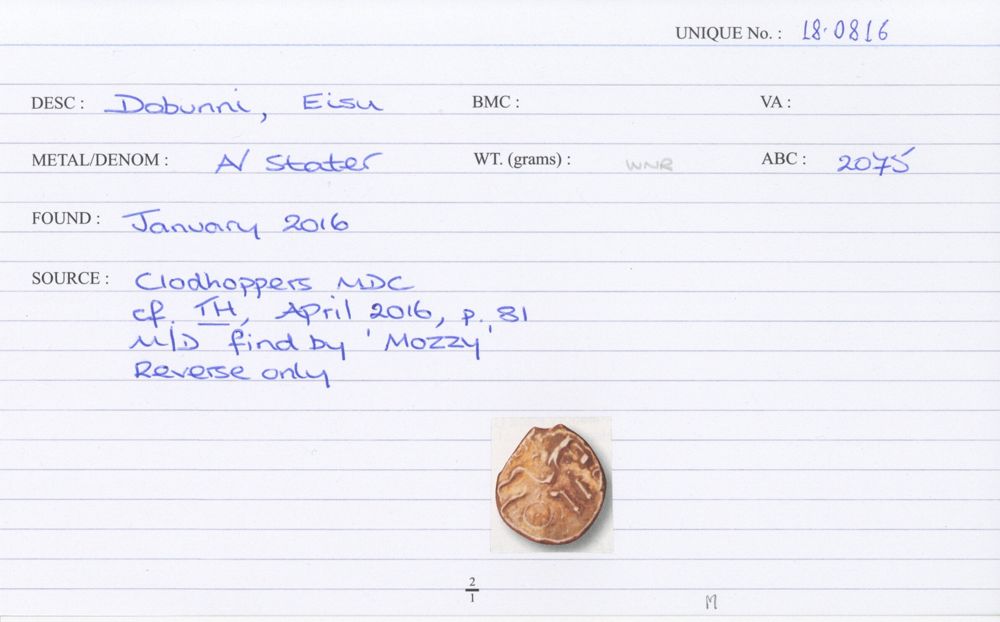 UNIQUE No. : 18.0816
DESC : Dobunni, Eisu BMC : VA :
METAL/DENOM : A/ Stater WT. (grams) : WNR ABC : 2075
FOUND : January 2016
SOURCE : Clodhoppers MDC
cf. TH, April 2016, p. 81
M/D find by 'Mozzy'
Reverse only
2
1
M